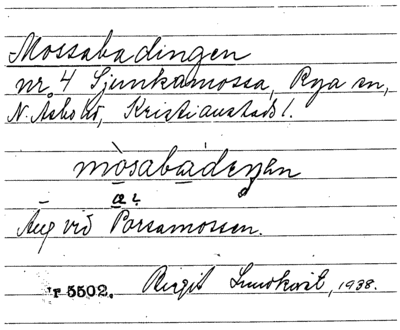 Mossabadingen
nr. 4 Sjunkamossa, Rya sn,
N. Åsbo hd, Kristianstads l.
mòsabadeŋən
Äng vid Porsamossen.
5502. Birgit Lundkvist, 1938.